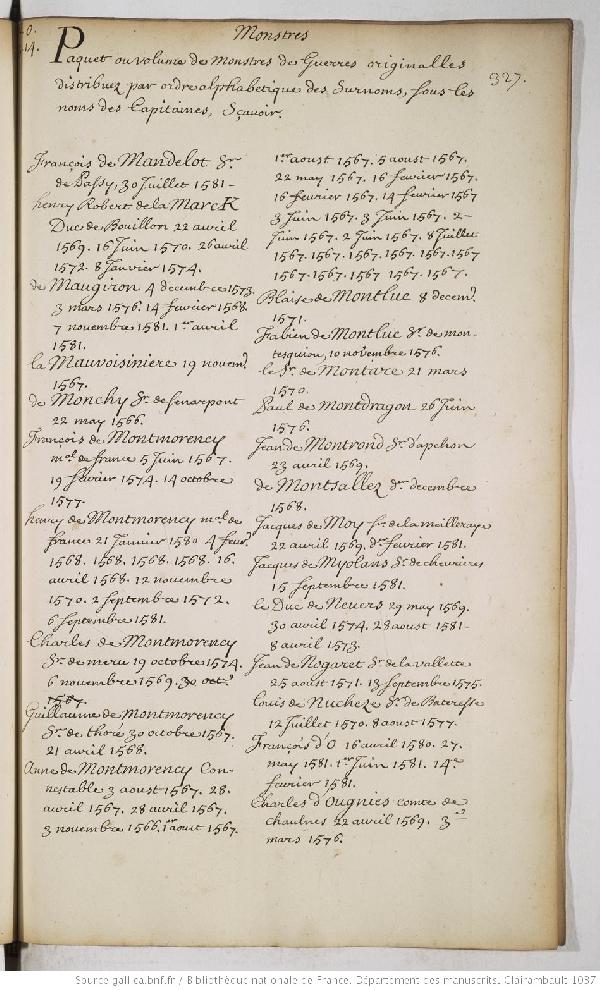 Monstres
Paquet ou volume de monstres de Guerres originalles
distribuez par ordre alphabetique des Surnoms, sous les
noms des Capitaines, Sçavoir.
327.
François de Mandelot Sr.
de Passy, 30 Juillet 1581-
henry Robert de la Marck
Duc de Bouillon 22 avril
1569. 16 Juin 1570. 26 avril
1572. 8 Janvier 1574.
de Maugiron 4 decembre 1573.
3 mars 1576. 14 fevrier 1568.
7 novembre 1581. 1er avril
1581.
la Mauvoisiniere 19 novem.
1567.
de Monchy Sr. de senarpont
22 may 1566.
François de Montmorency
mal. de france 5 Juin 1567.
19 fevrier 1574. 14 octobre
1577.
henry de Montmorency mal. de
france 21 Janvier 1580 4 fevr.
1568. 1568. 1568. 1568. 16.
avril 1568. 12 novembre
1570. 2 septembre 1572.
6 septembre 1581.
Charles de Montmorency
Sr. de meru 19 octobre 1574.
6 novembre 1569. 30 oct.
1567.
Guillaume de Montmorency
Sr. de thoré 30 octobre 1567.
21 avril 1568.
Anne de Montmorency Con-
nestable 3 aoust 1567. 28.
avril 1567. 28 avril 1567.
3 novembre 1566. 1er aoust 1567.
1er aoust 1567. 5 aoust 1567.
22 may 1567. 16 fevrier 1567.
16 fevrier 1567. 14 fevrier 1567
3 Juin 1567. 3 Juin 1567. 2-
Juin 1567. 2 Juin 1567. 8 Juillet
1567. 1567. 1567. 1567. 1567. 1567
1567. 1567. 1567 1567. 1567.
Blaise de Montluc 8 decem.
1571.
Fabien de Montluc Sr. de mon-
tesquiou, 10 novembre 1576.
le Sr. de Montare 21 mars
1570.
Paul de Montdragon 26 Juin
1576.
Jean de Montrond Sr. d'apchon
23 avril 1569.
de Montsallez Sr. decembre
1568.
Jacques de Moy Sr. de la meilleraye
22 avril 1569. fevrier 1581.
Jacques de Myolans Sr. de chevrieres
15 septembre 1581.
le Duc de Nevers 29 may 1569.
30 avril 1574. 28 aoust 1581-
8 avril 1573.
Jean de Nogaret Sr. de la vallette
25 aoust 1571. 13 septembre 1575.
Louis de Nucheze Sr. de Bateresse
12 Juillet 1570. 8 aoust 1577.
François d'O 16 avril 1580. 27.
may 1581. 1er Juin 1581. 14
fevrier 1581.
Charles d'Ougnies comte de
chaulnes 22 avril 1569. 3
mars 1576.
Source gallica.bnf.fr / Bibliothèque nationale de France. Département des manuscrits. Clairambault 1087